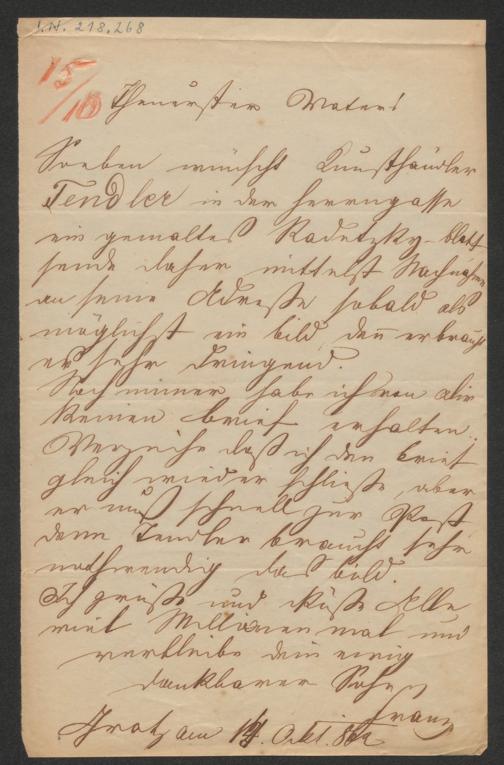 I.N. 218.268
15/10
Theuerster Vater!
Soeben wünscht Kunsthändler
Tendler in der Herrngasse
ein gemaltes Radetzky-blatt
sende daher mittelst Nachnahme
an seine Adresse sobald als
möglichst ein bild, den̄ er braucht
es sehr dringend.
Noch immer habe ich von dir
keinen brief erhalten.
Verzeihe daß ich den brief
gleich wieder schließe, aber
er muß schnell zur Post
denn Tendler braucht sehr
nothwendig das bild.
Ich grüße und küße Alle
viel Millionen mal und
verbleibe dein ewig
dankbarer Sohn
Franz
Gratz am 14. Okt.